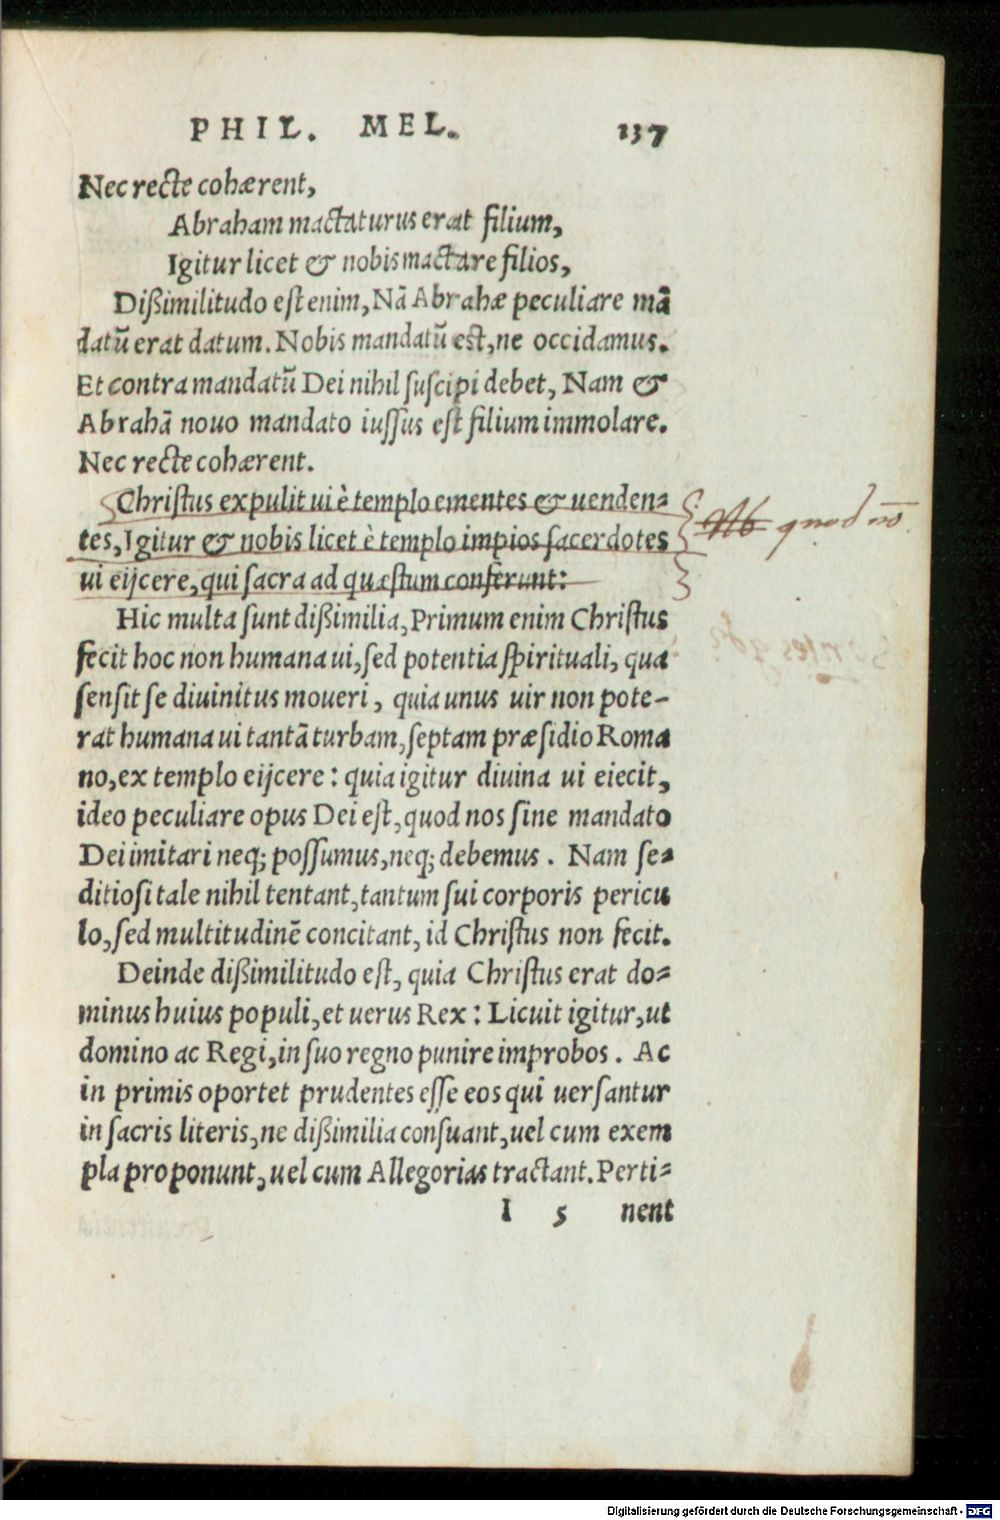 PHIL. MEL. 137
Nec recte cohærent,
Abraham mactaturus erat filium,
Igitur licet & nobis mactare filios,
Dißimilitudo est enim, Nā Abrahæ peculiare mā
datū erat datum. Nobis mandatū est, ne occidamus.
Et contra mandatū Dei nihil suscipi debet, Nam &
Abrahā nouo mandato iussus est filium immolare.
Nec recte cohærent.
Christus expulit ui è templo ementes & uenden⸗
tes, Igitur & nobis licet è templo impios sacerdotes
ui eijcere, qui sacra ad quæstum conferunt:
quod nō
Hic multa sunt dißimilia, Primum enim Christus
fecit hoc non humana ui, sed potentia spirituali, qua
sensit se diuinitus moueri, quia unus uir non pote-
rat humana ui tantā turbam, septam præsidio Roma
no, ex templo eijcere: quia igitur diuina ui eiecit,
ideo peculiare opus Dei est, quod nos sine mandato
Dei imitari neq; possumus, neq; debemus. Nam se⸗
ditiosi tale nihil tentant, tantum sui corporis pericu
lo, sed multitudinē concitant, id Christus non fecit.
Deinde dißimilitudo est, quia Christus erat do⸗
minus huius populi, et uerus Rex: Licuit igitur, ut
domino ac Regi, in suo regno punire improbos. Ac
in primis oportet prudentes esse eos qui uersantur
in sacris literis, ne dißimilia consuant, uel cum exem
pla proponunt, uel cum Allegorias tractant. Perti⸗
I 5 nent
Digitalisierung gefördert durch die Deutsche Forschungsgemeinschaft - DFG